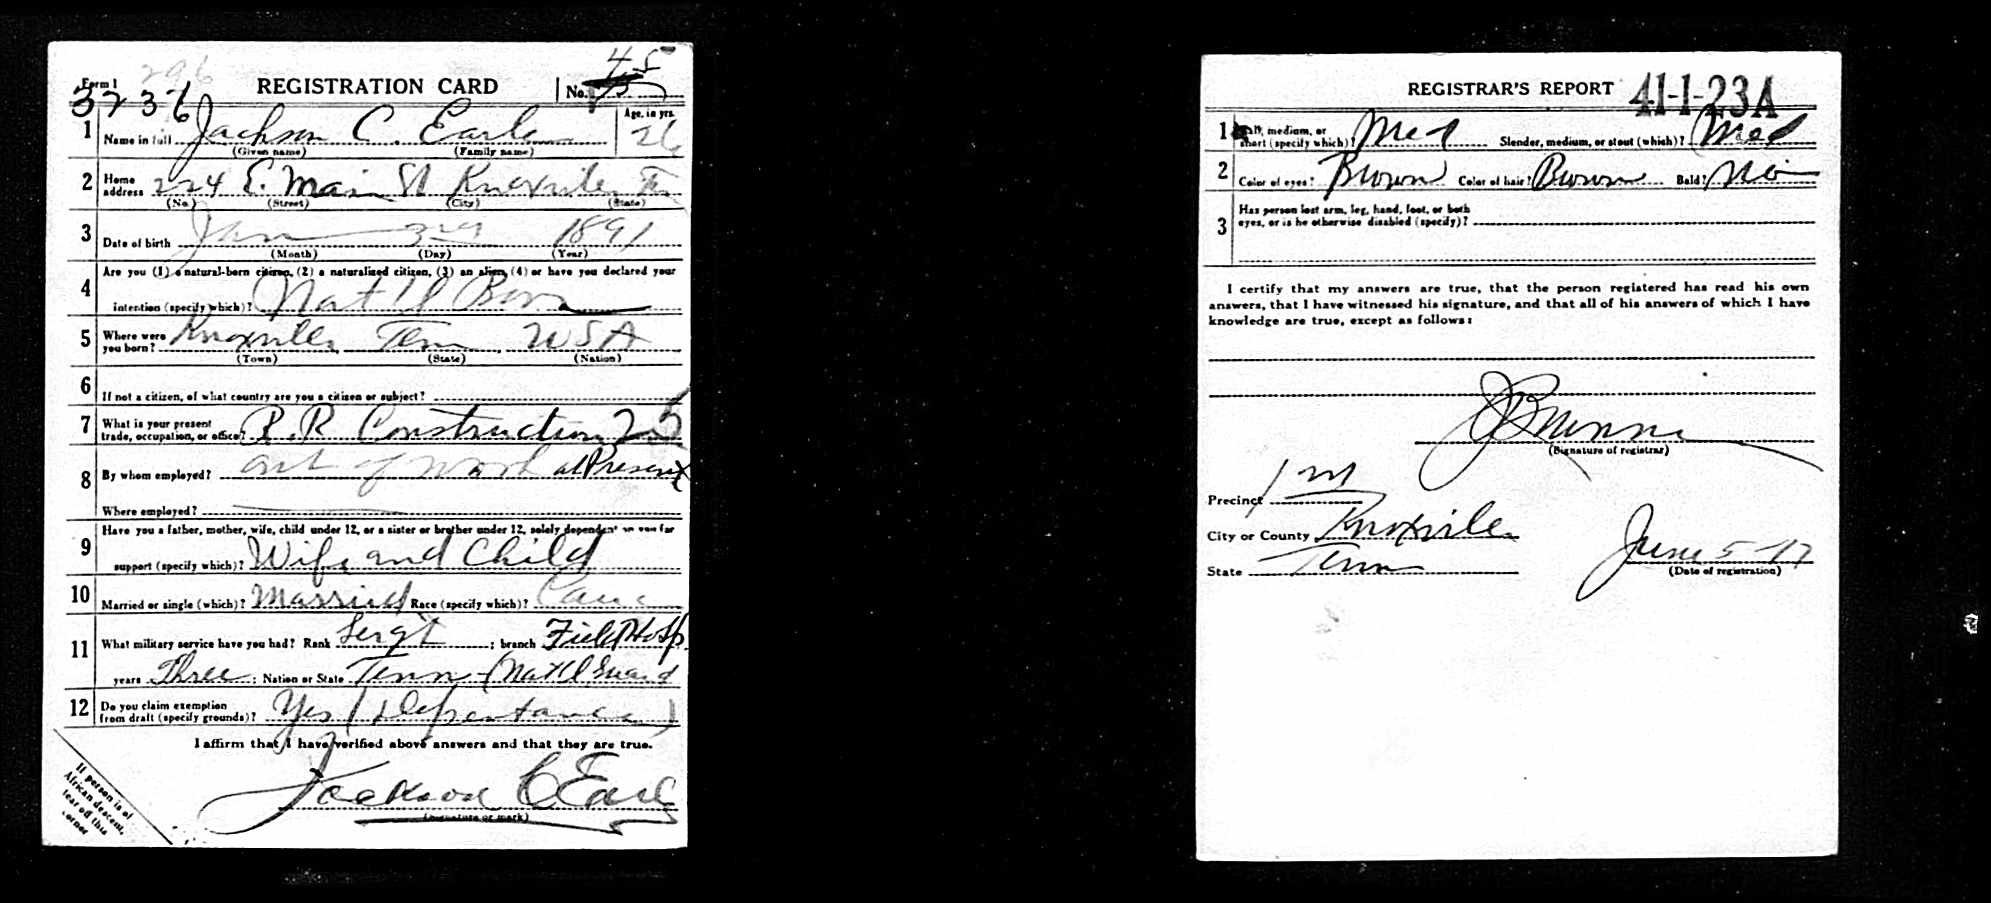 Form 1
296
REGISTRATION CARD
No. 45
3236
1 Name in full Jackson C. Earle
(Given name) (Family name)
Age, in yrs. 26
2 Home address 224 E. Main St Knoxville Tenn
(No.) (Street) (City) (State)
3 Date of birth Jan 3rd 1891
(Month) (Day) (Year)
4 Are you (1) a natural-born citizen, (2) a naturalized citizen, (3) an alien, (4) or have you declared your
intention (specify which)? Nat'l Born
5 Where were you born? Knoxville, Tenn, USA
(Town) (State) (Nation)
6 If not a citizen, of what country are you a citizen or subject?
7 What is your present
trade, occupation, or office? R.R Construction 25
8 By whom employed? out of work at Present
Where employed?
9 Have you a father, mother, wife, child under 12, or a sister or brother under 12, solely dependent on you for
support (specify which)? Wife and Child
10 Married or single (which)? Married Race (specify which)? Cauc
11 What military service have you had? Rank Sergt ; branch Field Hosp
years Three ; Nation or State Tenn (Nat'l Guard
12 Do you claim exemption
from draft (specify grounds)? Yes (Dependance)
I affirm that I have verified above answers and that they are true.
Jackson C Earle
(Signature or mark)
If person is of
African descent,
tear off this
corner
REGISTRAR'S REPORT
41-1-23A
1 Tall, medium, or
short (specify which)? Med Slender, medium, or stout (which)? Med
2 Color of eyes? Brown Color of hair? Brown Bald? No
3 Has person lost arm, leg, hand, foot, or both
eyes, or is he otherwise disabled (specify)?
I certify that my answers are true, that the person registered has read his own
answers, that I have witnessed his signature, and that all of his answers of which I have
knowledge are true, except as follows:
(Signature of registrar)
Precinct 1st
City or County Knoxville
State Tenn
June 5-17
(Date of registration)